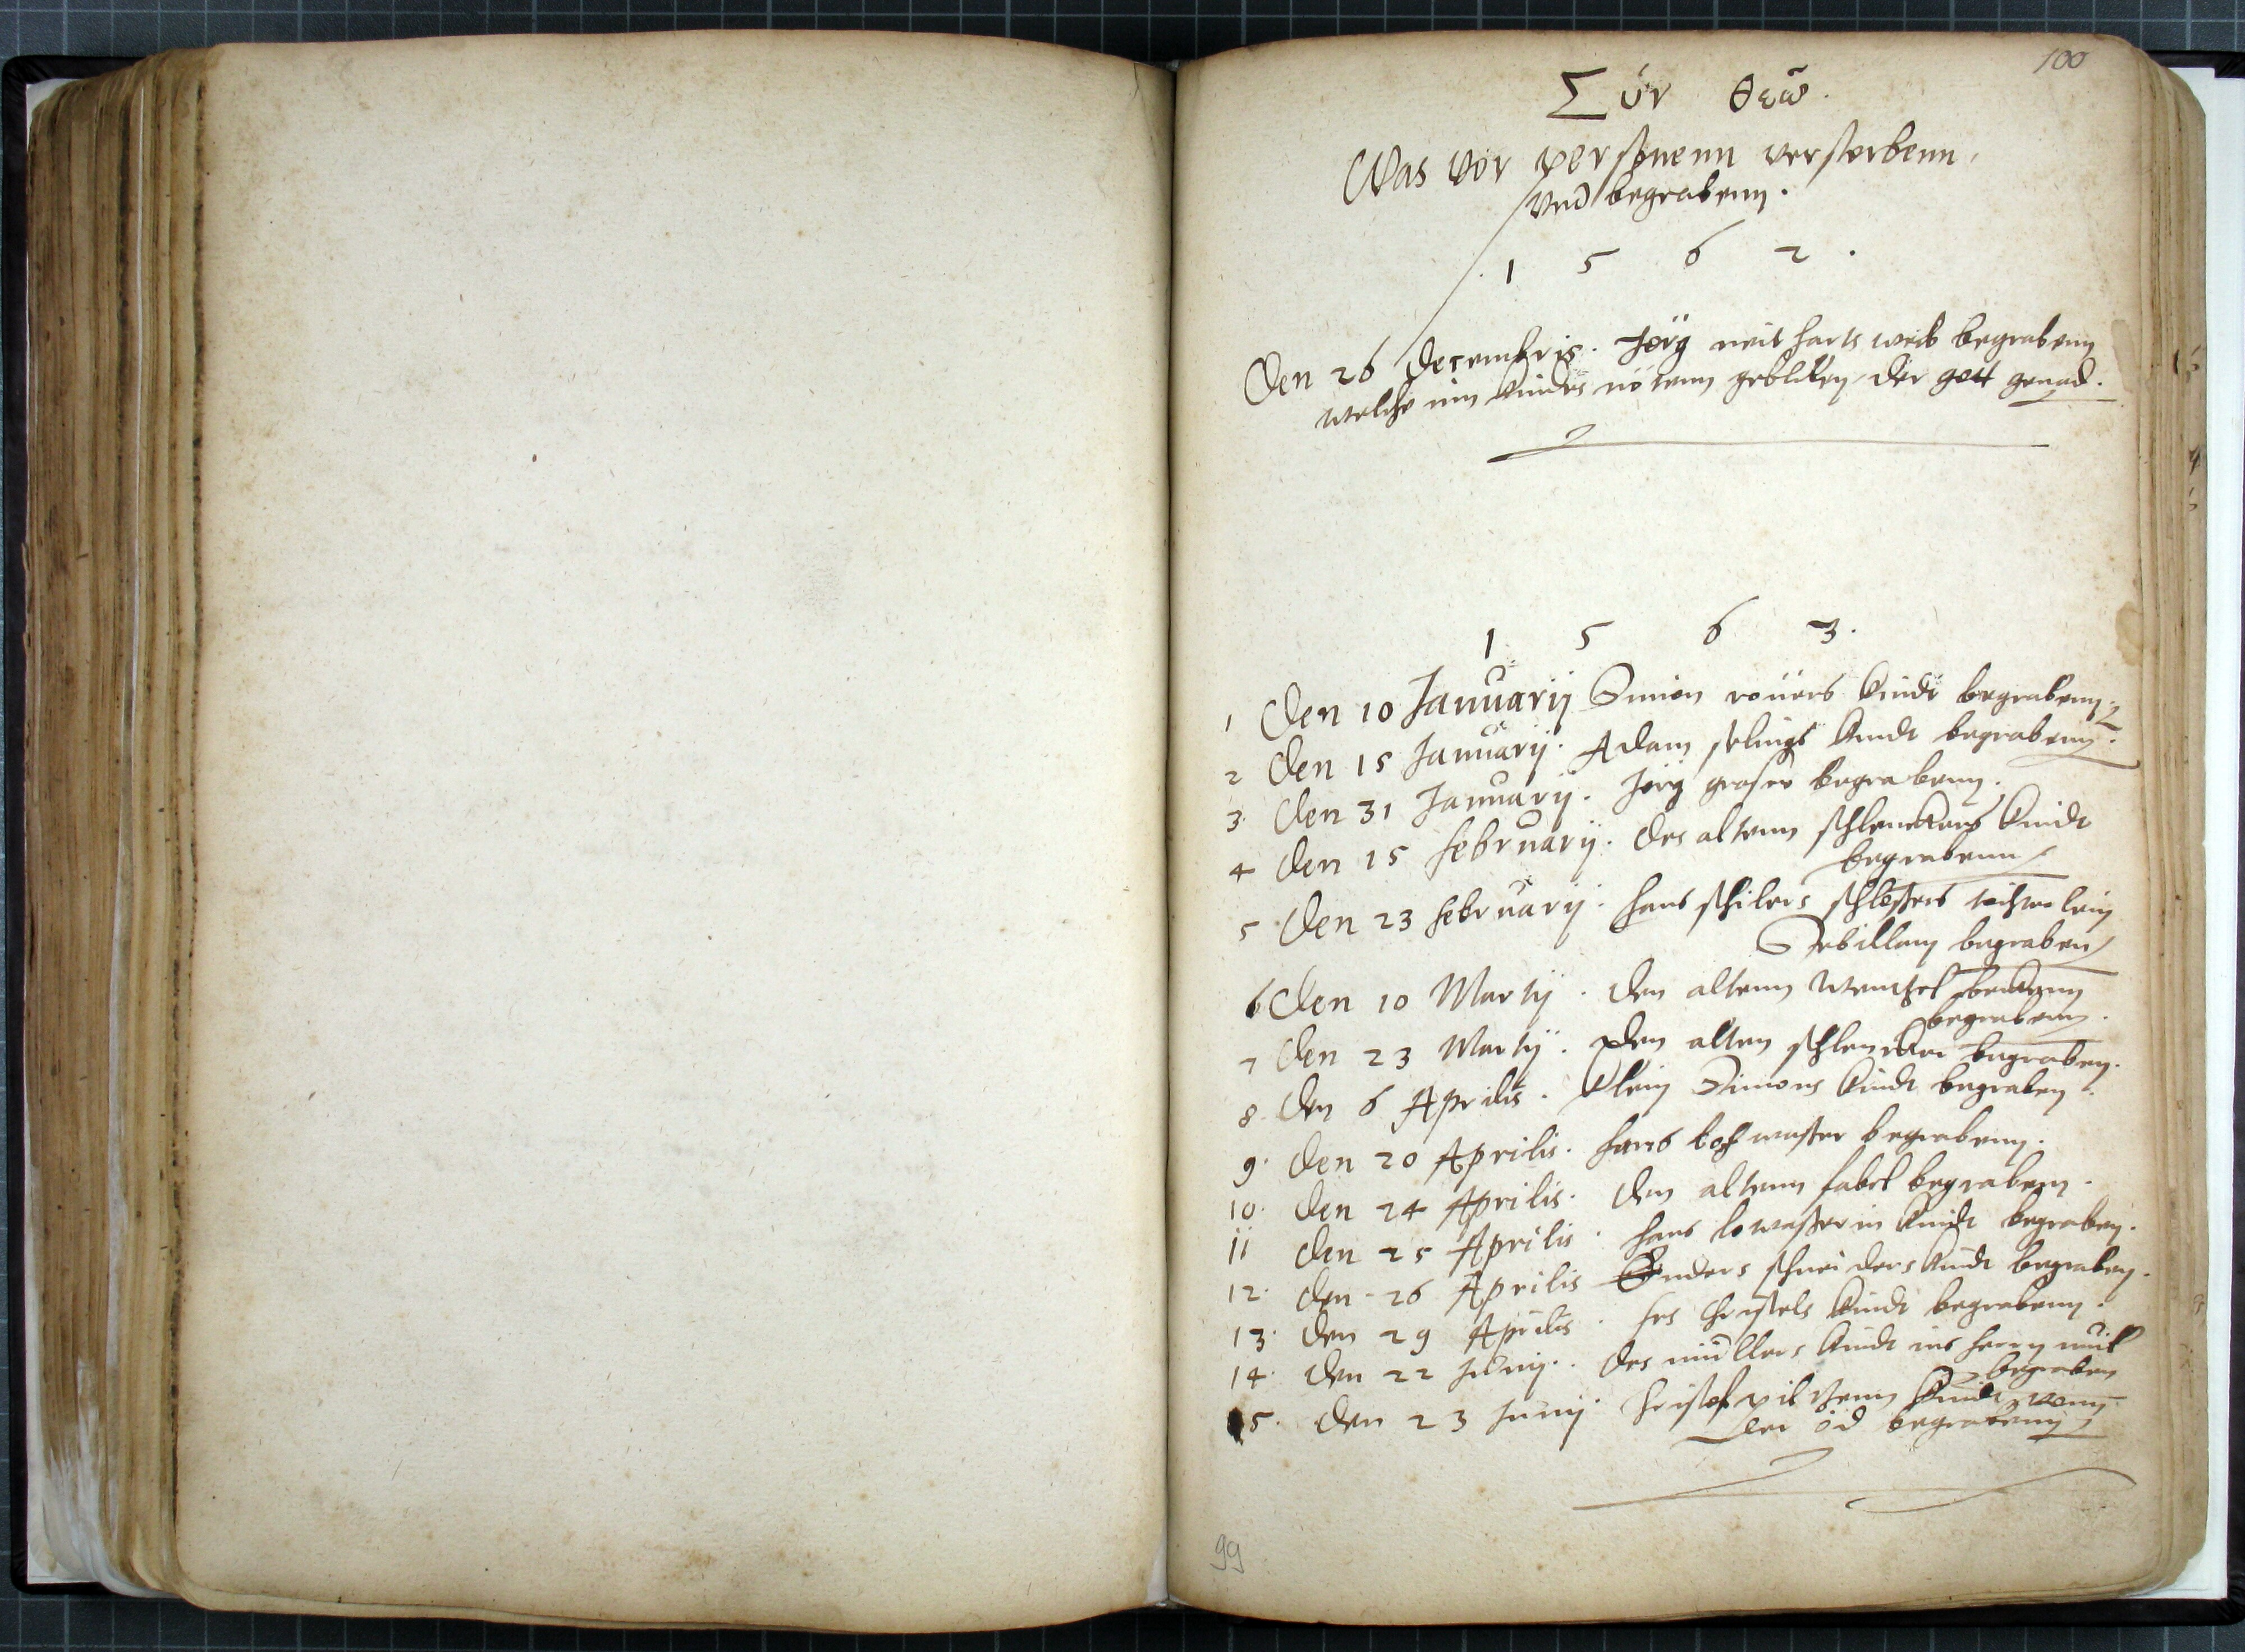 100
Σὺν θεῶ.
Was vor personenn verstorbenn,
vnd begrabenn.
1 5 6 2.
Den 26 Decembris. Jörg neitharts weib begrabenn
welche inn kindes nötenn gebliben der gott genad.
1 5 6 3.
1 Den 10 Januarij Simon kindt begrabenn
2 Den 15 Januarij. Adam kindt begrabenn.
3. Den 31 Januarij. Jörg groser begrabenn.
4 Den 15 februarij. Des altenn kindt
begrabenn
5 Den 23 februarij. hans schilers schlossers töchterlein
Sebillam begraben
6 Den 10 Martij. Den altenn Wentzel
begrabenn.
7 Den 23 Martij. Den alten begraben.
8. Den 6 Aprilis. Klein Simons kindt begraben.
9. Den 20 Aprilis. hans begrabenn.
10. Den 24 Aprilis. Den altenn fabel begrabenn.
11 Den 25 Aprilis. hans kindt begraben.
12. Den 26 Aprilis Enders schneiders kindt begraben.
13. Den 29 Aprilis. kindt begrabenn.
14. Den 22 Junij. Des müllers kindt
begraben
15. Den 23 Junij. kindt vonn
der öd begrabenn
99